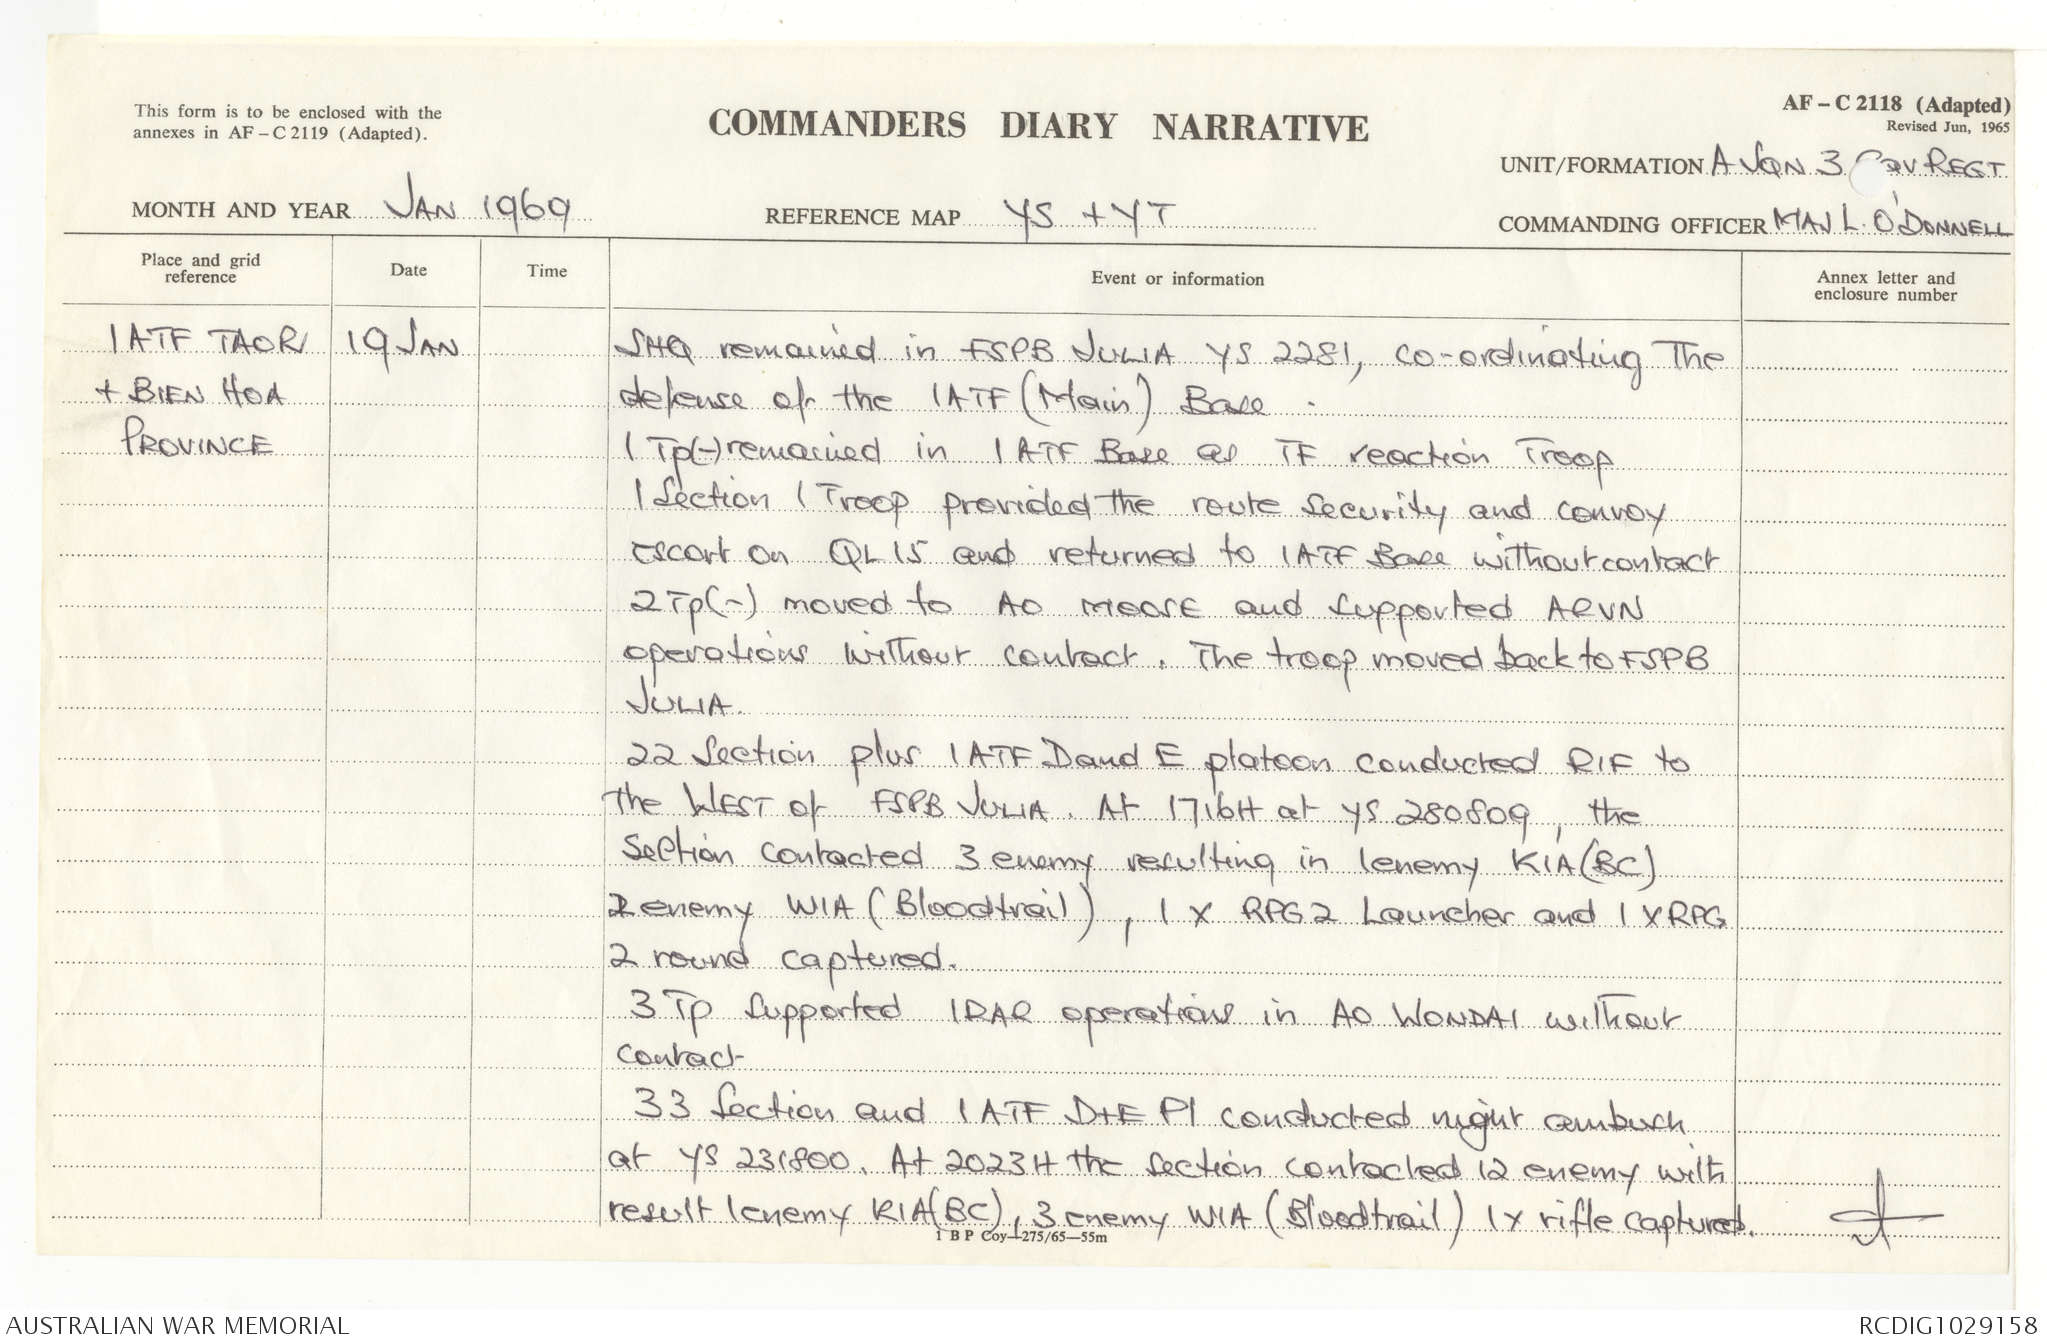 This form is to be enclosed with the
annexes in AF – C 2119 (Adapted).
COMMANDERS DIARY NARRATIVE
AF – C 2118 (Adapted)
Revised Jun, 1965
UNIT/FORMATION A SQN 3 CAV REGT
MONTH AND YEAR JAN 1969
REFERENCE MAP YS + YT
COMMANDING OFFICER MAJ L. O'DONNELL
Place and grid
reference
Date
Time
Event or information
Annex letter and
enclosure number
1 ATF TAOR 19 JAN SHQ remained in FSPB JULIA YS 2281, co-ordinating The
+ BIEN HOA defense of the 1 ATF (Main) Base.
PROVINCE 1 Tp(-) remained in 1 ATF Base as TF reaction Troop
1 Section 1 Troop provided the route security and convoy
escort on QL 15 and returned to 1 ATF Base without contact
2 Tp(-) moved to AO MOOSE and supported ARVN
operations without contact. The troop moved back to FSPB
JULIA.
22 Section plus 1 ATF D and E platoon conducted RIF to
the WEST of FSPB JULIA. At 1716H at YS 280809, the
Section contacted 3 enemy resulting in 1 enemy KIA (BC)
2 enemy WIA (Bloodtrail), 1 x RPG 2 Launcher and 1 x RPG
2 round captured.
3 Tp supported 1RAR operations in AO WONDAI without
contact
33 Section and 1 ATF D+E Pl conducted night ambush
at YS 231800. At 2023H the section contacted 12 enemy with
result 1 enemy KIA (BC), 3 enemy WIA (Bloodtrail) 1 x rifle captured.
1 B P Coy—275/65—55m
AUSTRALIAN WAR MEMORIAL
RCDIG1029158